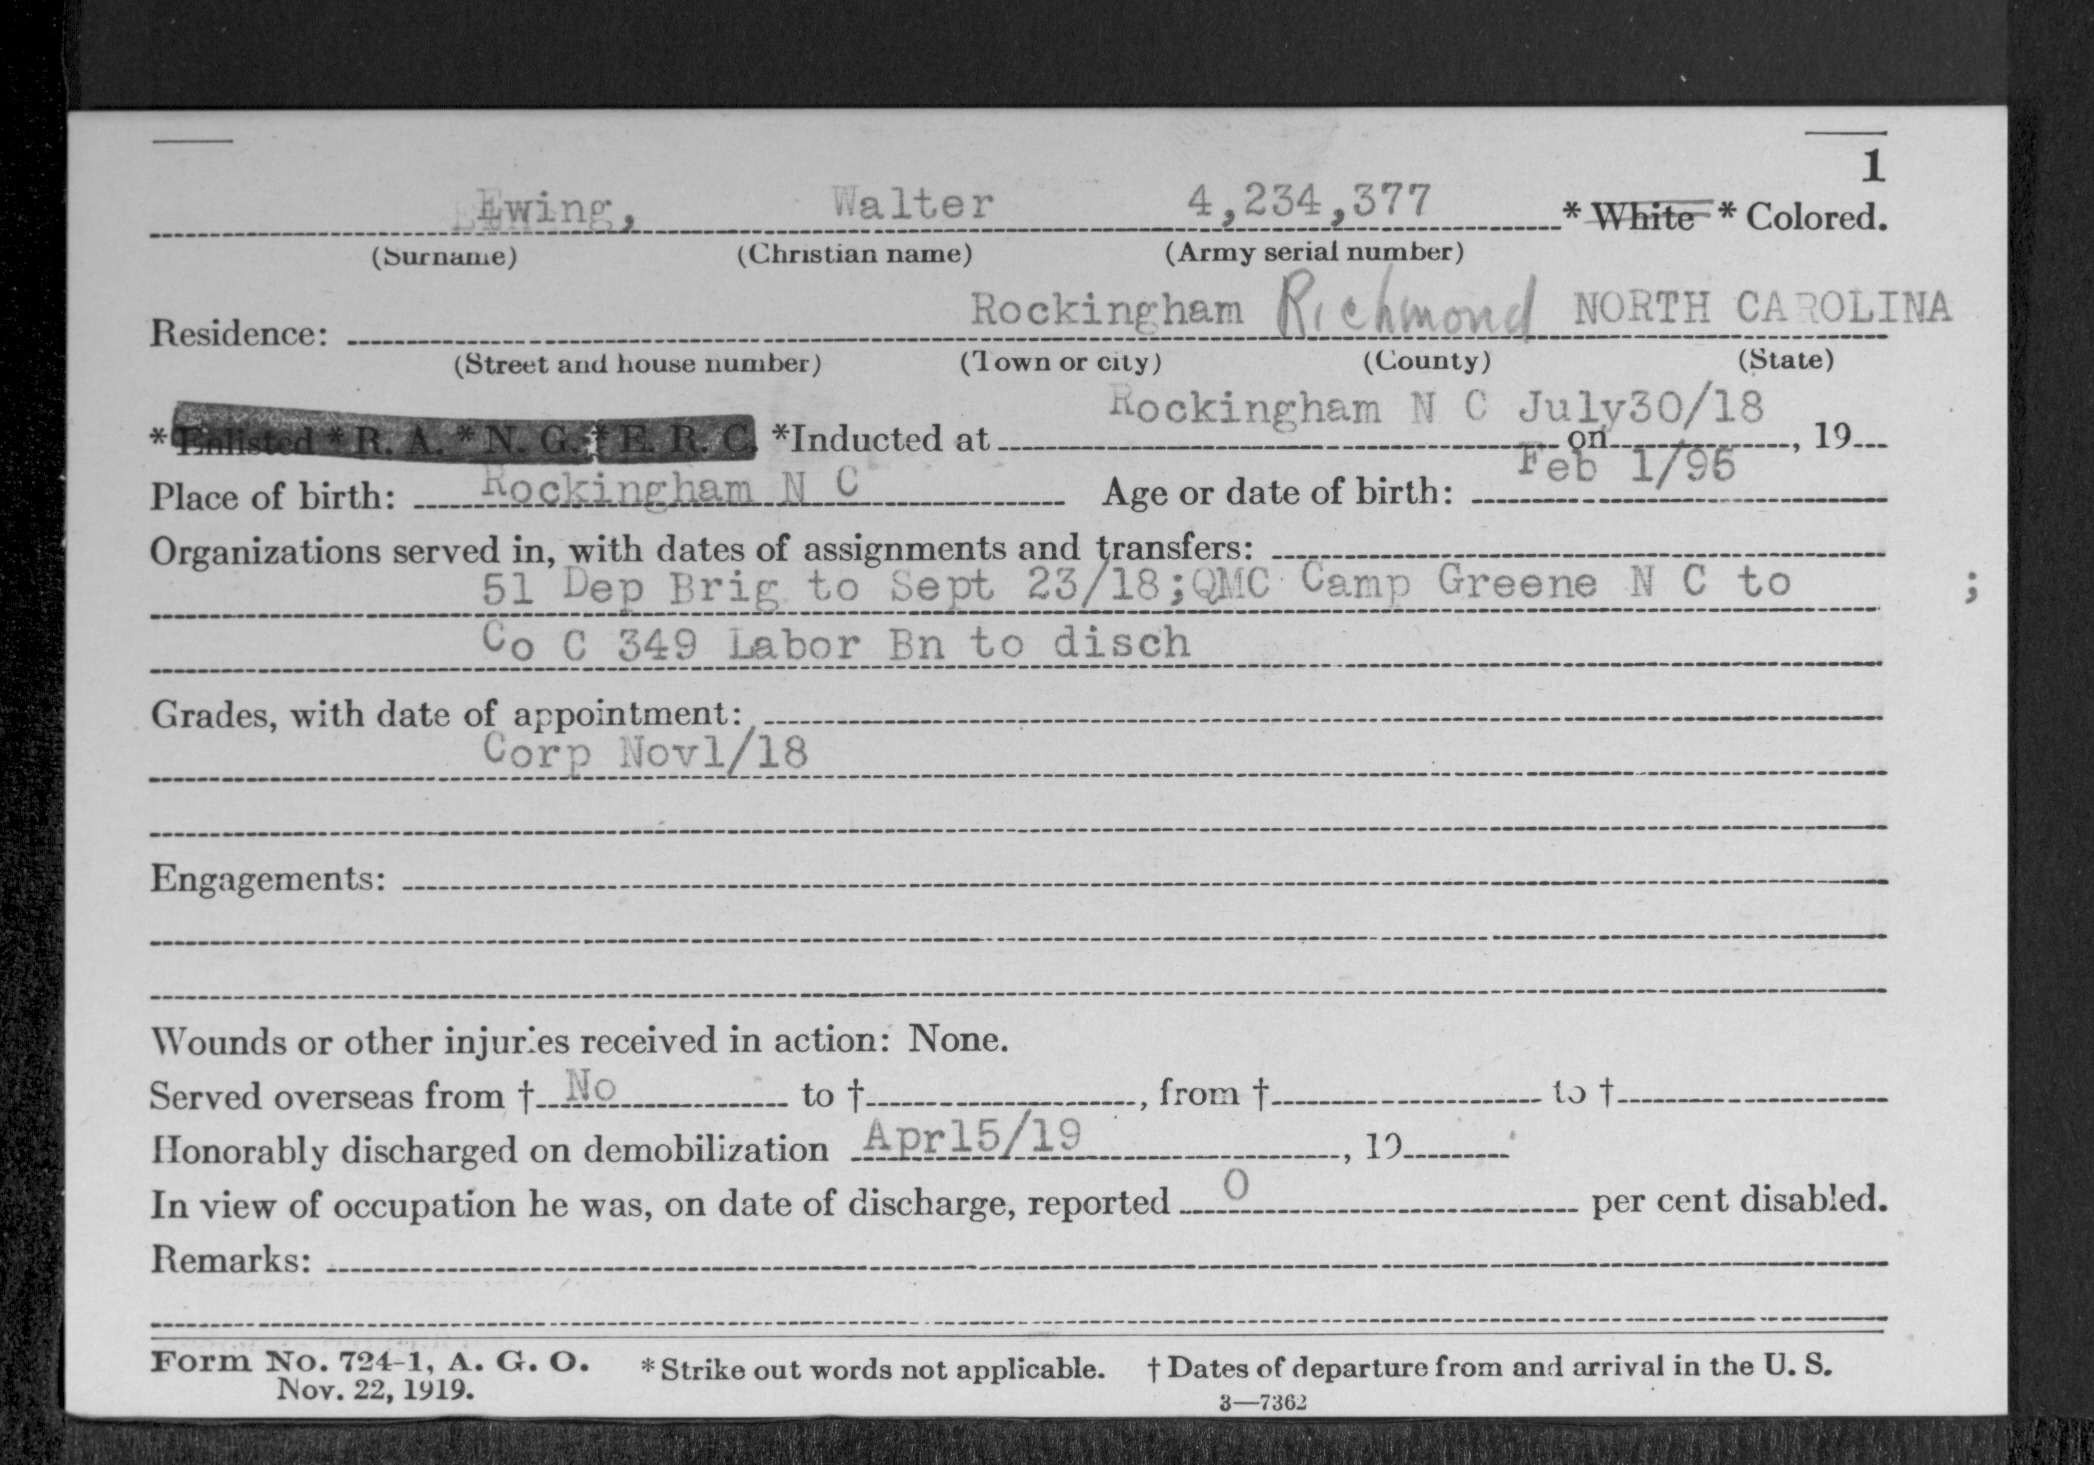 1
Ewing, Walter 4,234,377 * White * Colored.
(Surname) (Christian name) (Army serial number)
Residence: Rockingham Richmond NORTH CAROLINA
(Street and house number) (Town or city) (County) (State)
* Enlisted * R. A. * N. G. * E. R. C. *Inducted at Rockingham N C on July30/18, 19
Place of birth: Rockingham N C Age or date of birth: Feb 1/96
Organizations served in, with dates of assignments and transfers:
51 Dep Brig to Sept 23/18;QMC Camp Greene N C to ;
Co C 349 Labor Bn to disch
Grades, with date of appointment:
Corp Nov1/18
Engagements:
Wounds or other injuries received in action: None.
Served overseas from † No to †, from † to †
Honorably discharged on demobilization Apr15/19, 19
In view of occupation he was, on date of discharge, reported 0 per cent disabled.
Remarks:
Form No. 724-1, A. G. O. * Strike out words not applicable. † Dates of departure from and arrival in the U. S.
Nov. 22, 1919.
3—7362